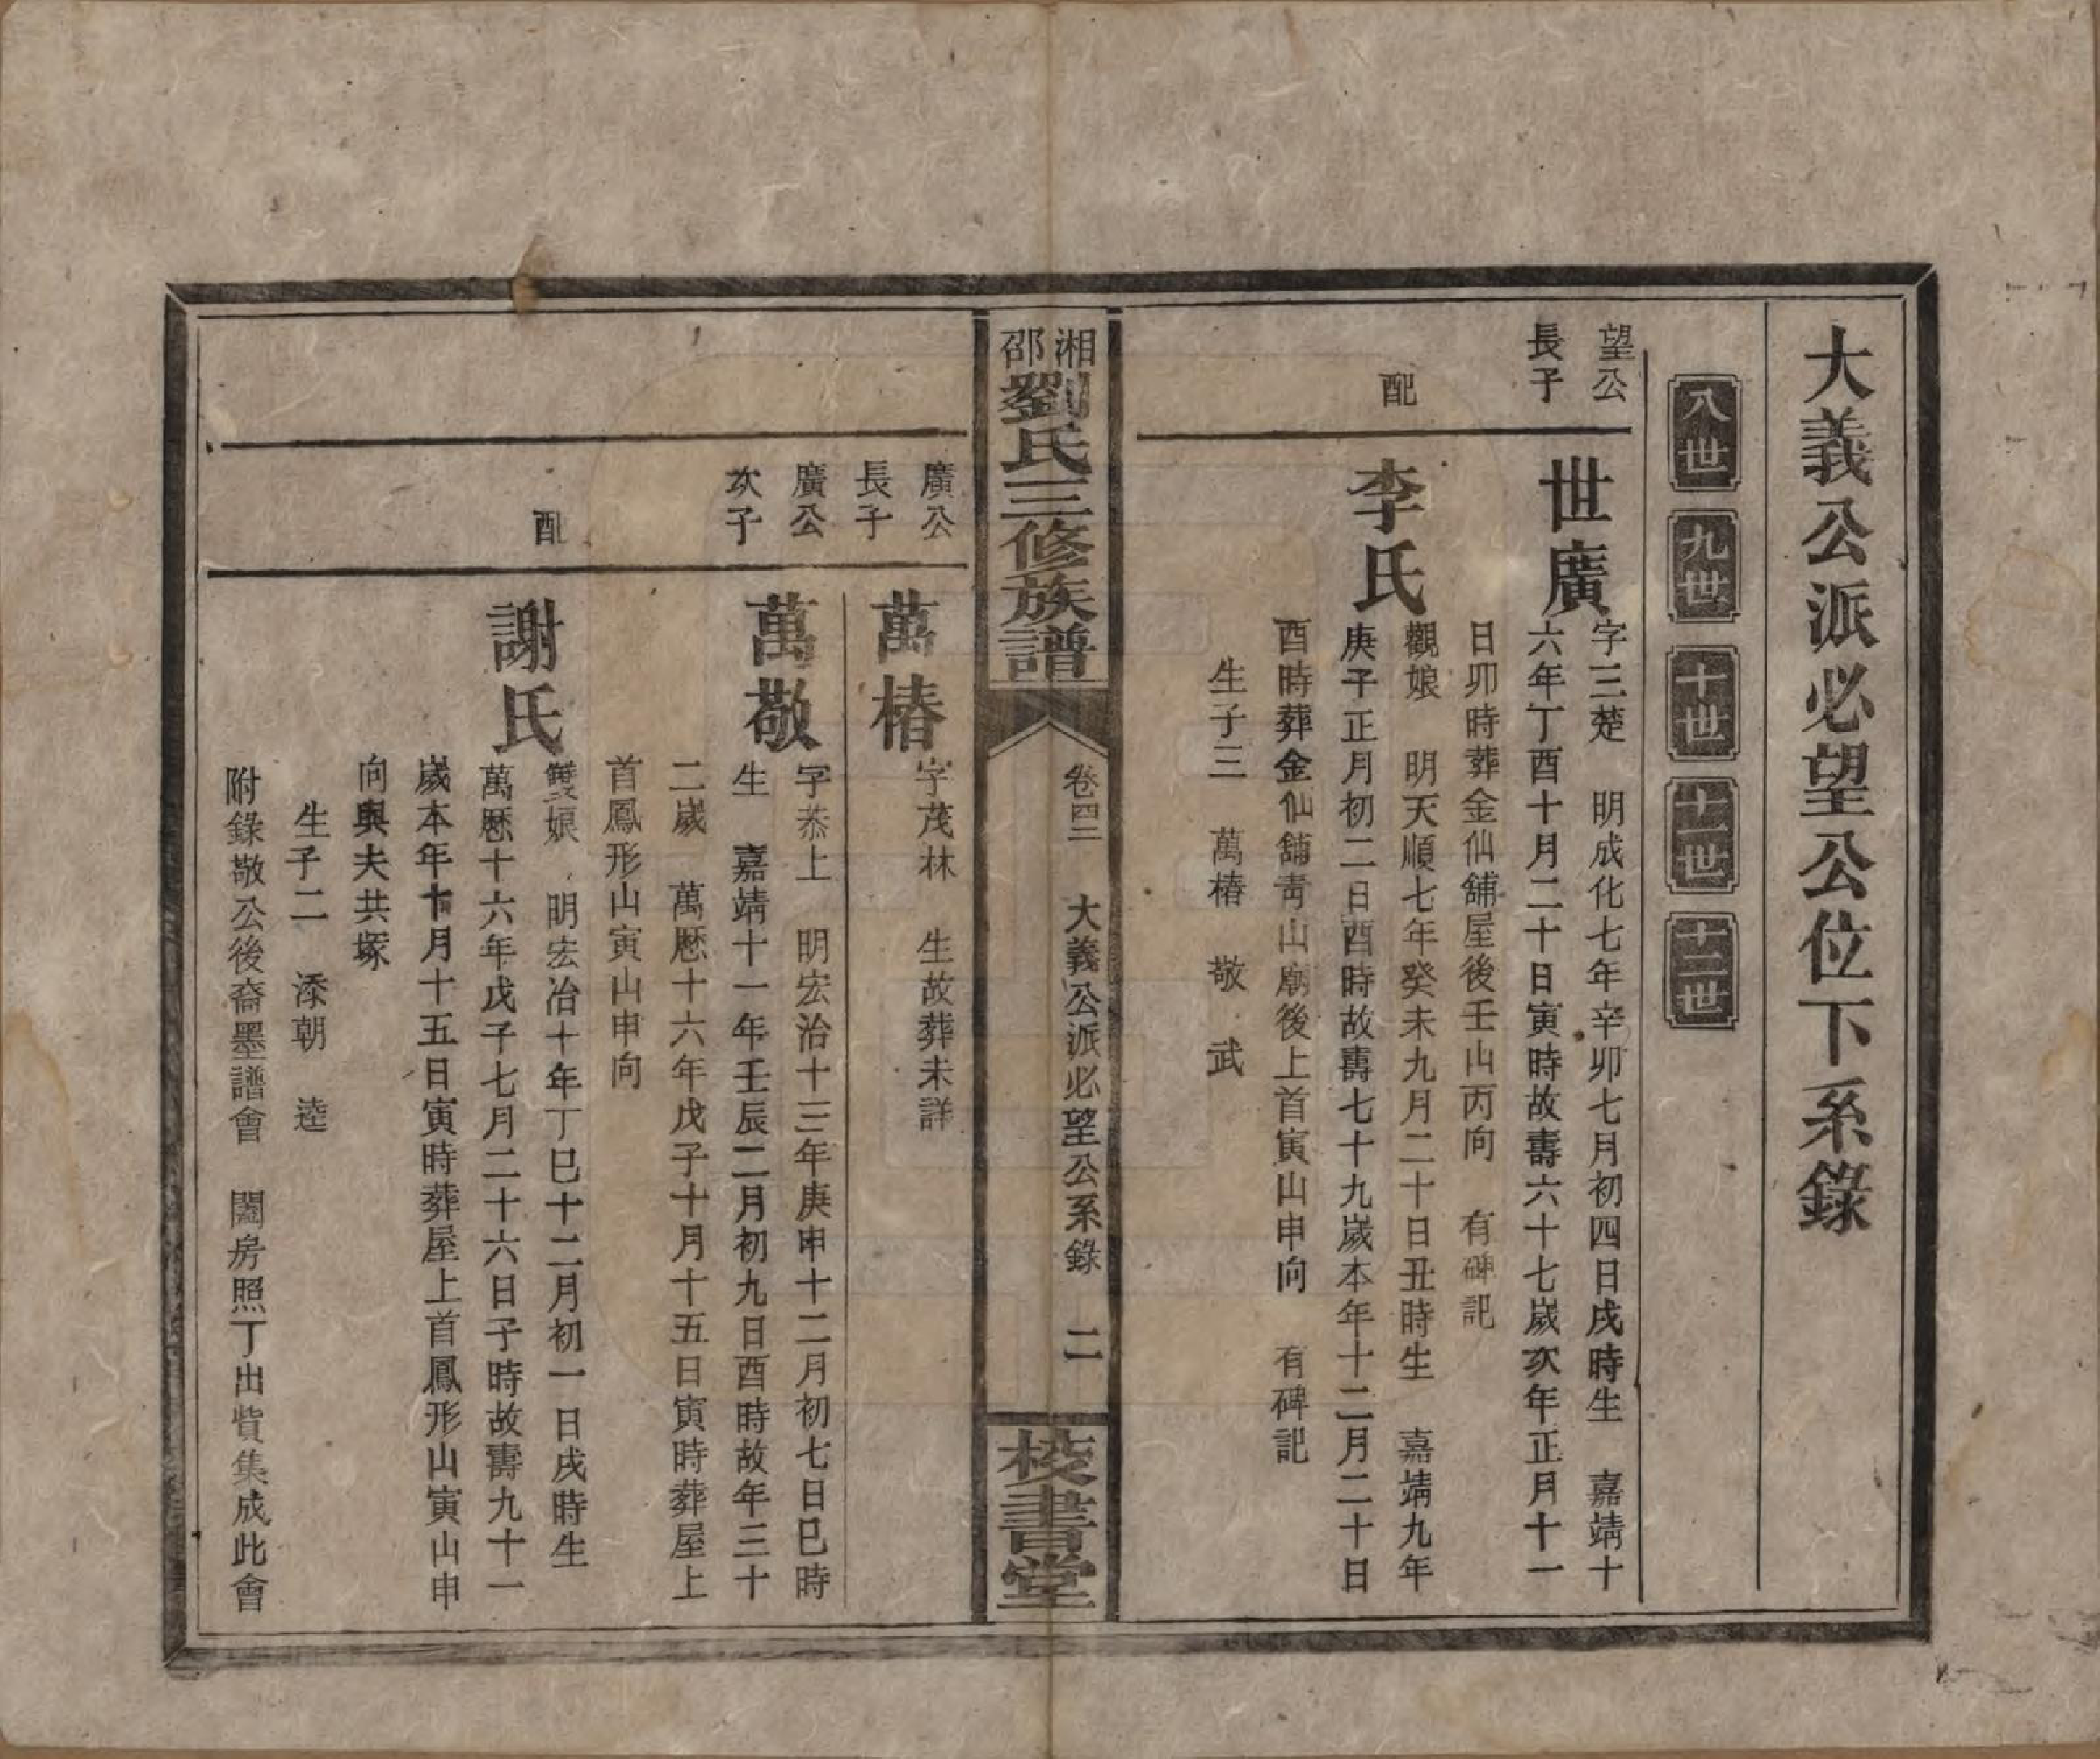 大義公派必望公位下系錄
八世
九世
十世
十一世
十二世
望公
長子
世廣
字三楚　明成化七年辛卯七月初四日戌時生　嘉靖十
六年丁酉十月二十日寅時故壽六十七歲次年正月十一
日卯時葬金仙舖屋後壬山丙向　有碑記
配
李氏
觀娘　明天順七年癸未九月二十日丑時生　嘉靖九年
庚子正月初二日酉時故壽七十九歲本年十二月二十日
酉時葬金仙舖青山廟後上首寅山申向　有碑記
生子三　萬椿　敬　武
湘邵劉氏三修族譜
卷四二　大義公派必望公系錄　二
校書堂
廣公
長子
萬椿
字茂林　生故葬未詳
廣公
次子
萬敬
字恭上　明宏治十三年庚申十二月初七日巳時
生　嘉靖十一年壬辰二月初九日酉時故年三十
二歲　萬歷十六年戊子十月十五日寅時葬屋上
首鳳形山寅山申向
配
謝氏
雙娘　明宏治十年丁巳十二月初一日戌時生
萬歷十六年戊子七月二十六日子時故壽九十一
歲本年十月十五日寅時葬屋上首鳳形山寅山申
向與夫共塚
生子二　添朝　逵
附錄敬公後裔墨譜會　闔房照丁出貲集成此會